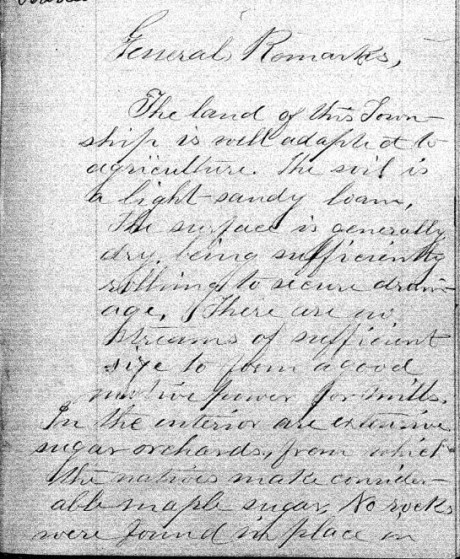 General Remarks,
The land of this Town-
ship is well adapted to
agriculture. The soil is
a light sandy loam,
The surface is generally
dry, being sufficiently
rolling to secure drain-
age, There are no
streams of sufficient
size to form a good
motive power for mills.
In the interior are extensive
sugar orchards, from which
the natives make consider-
able maple sugar, No rocks
were found in place on